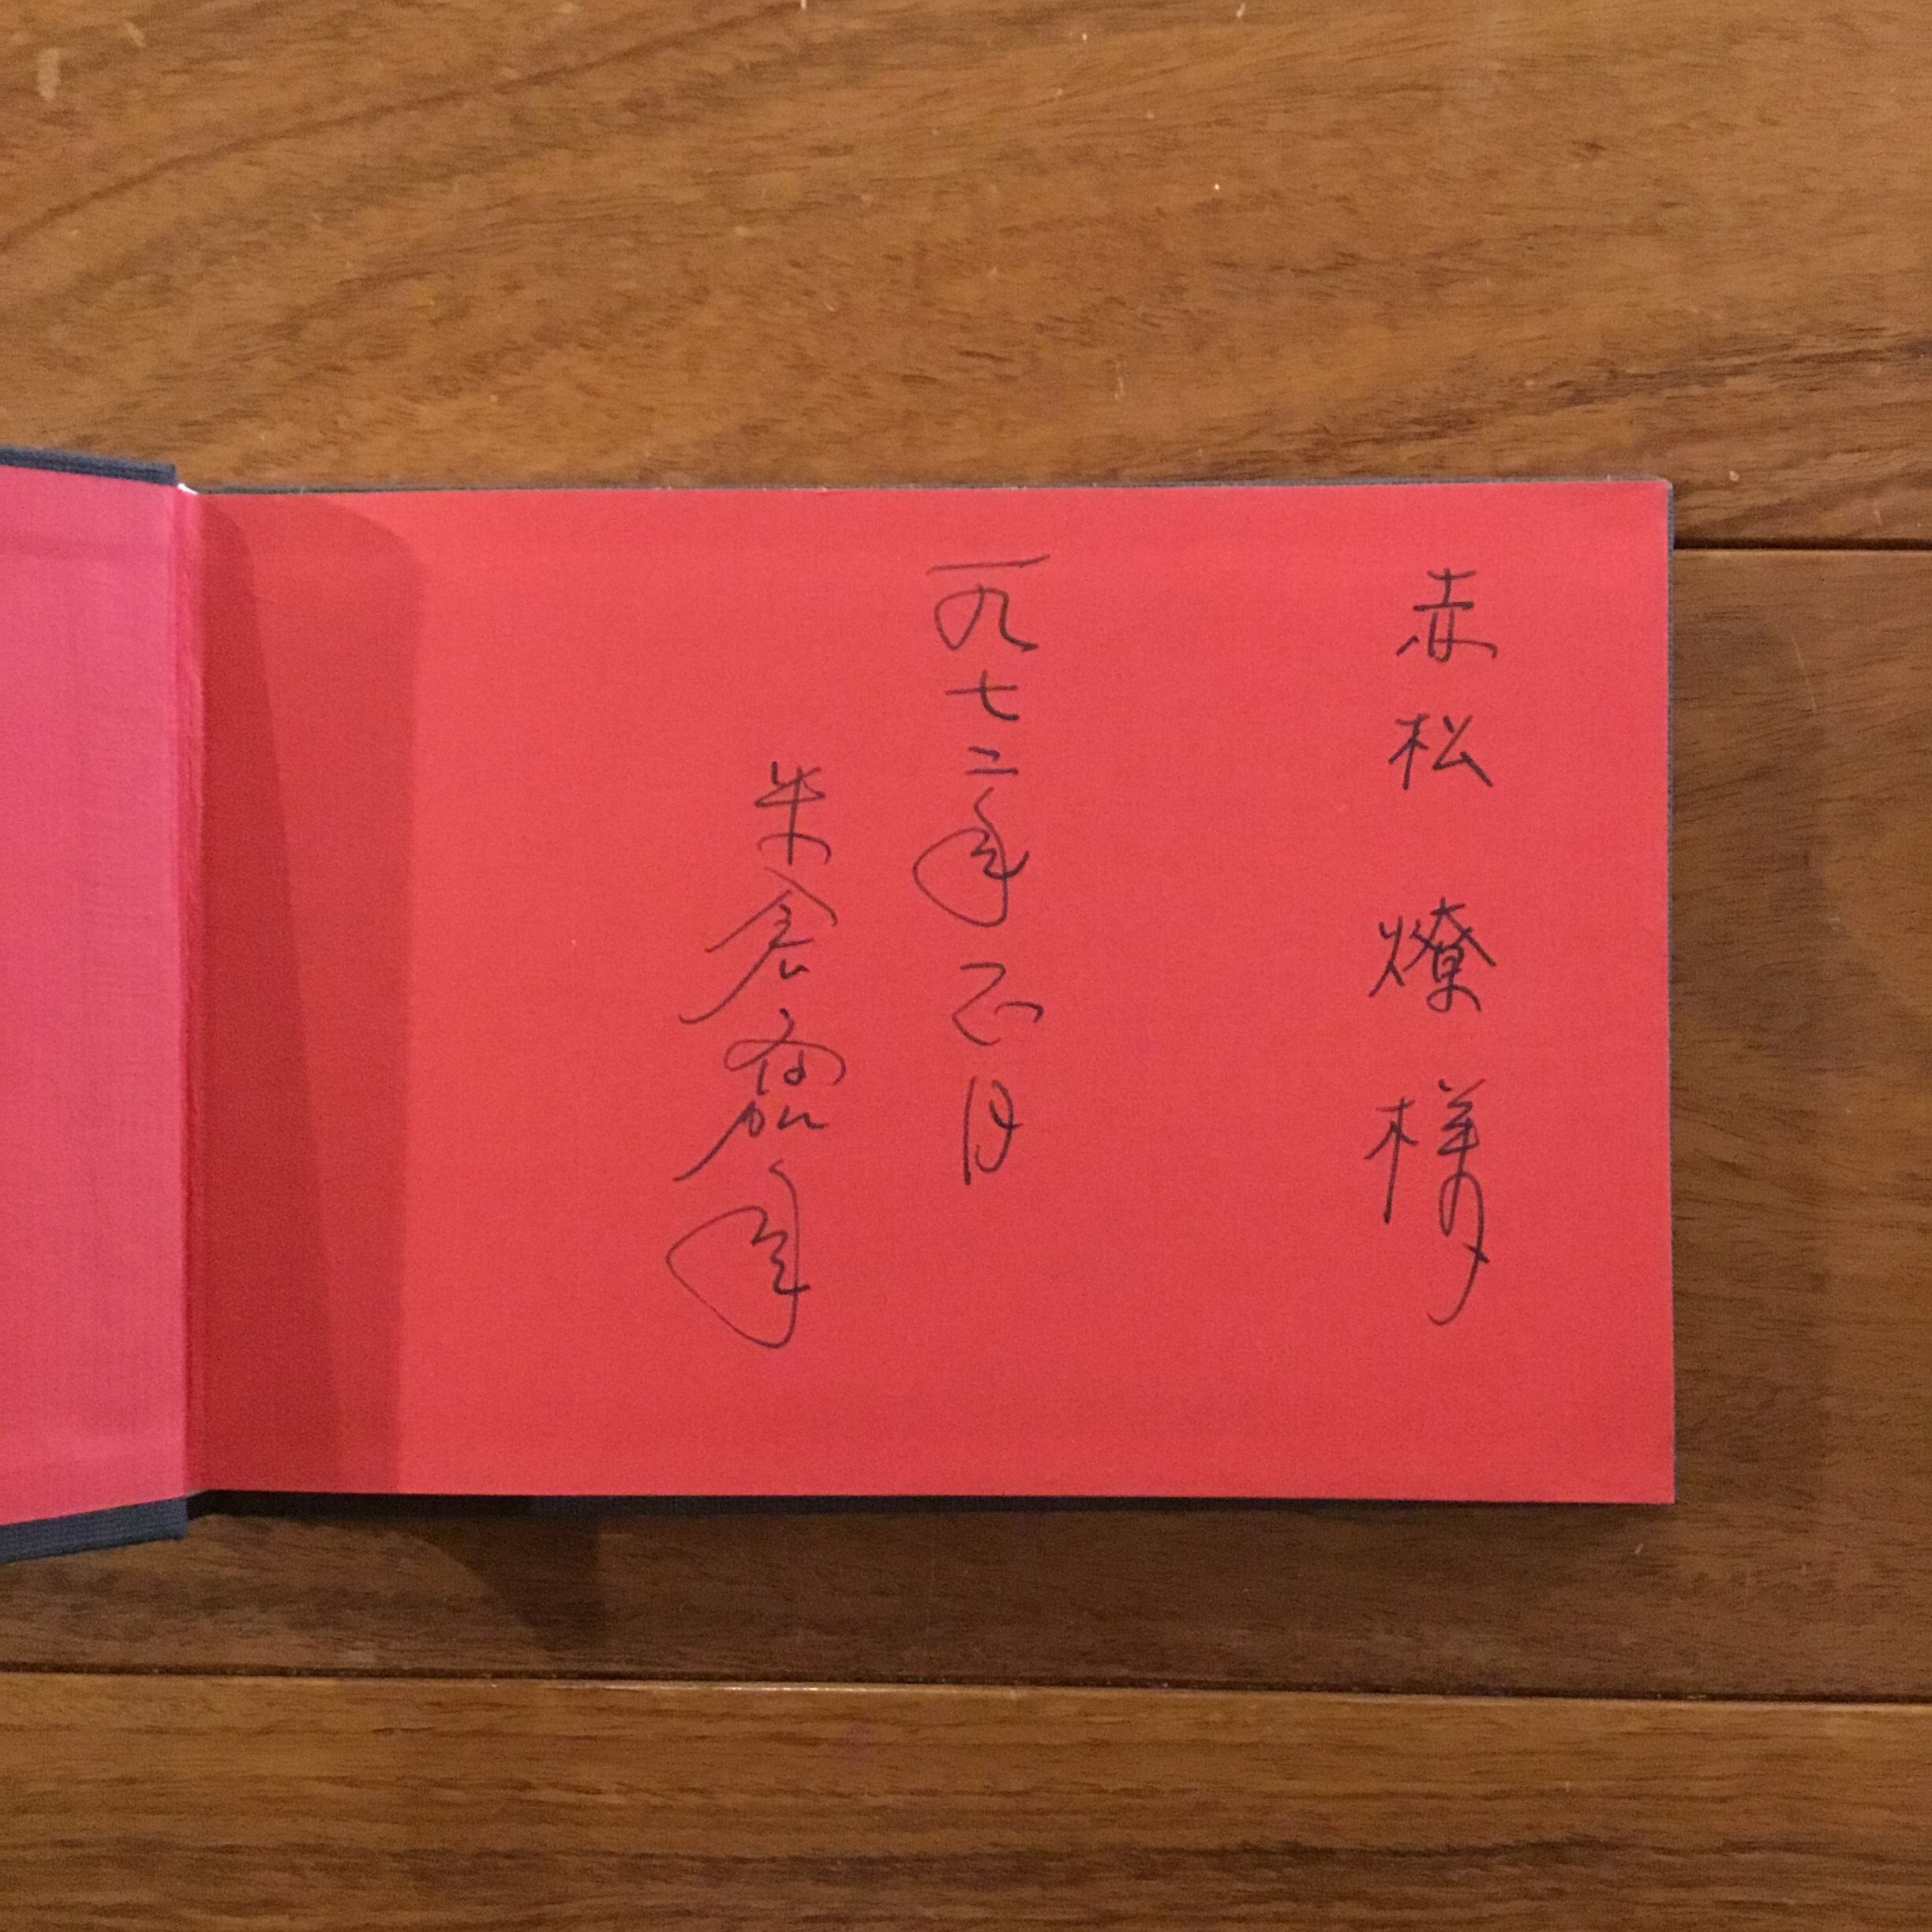 赤松 燎 様
一九七二年 正月
米倉斉加年